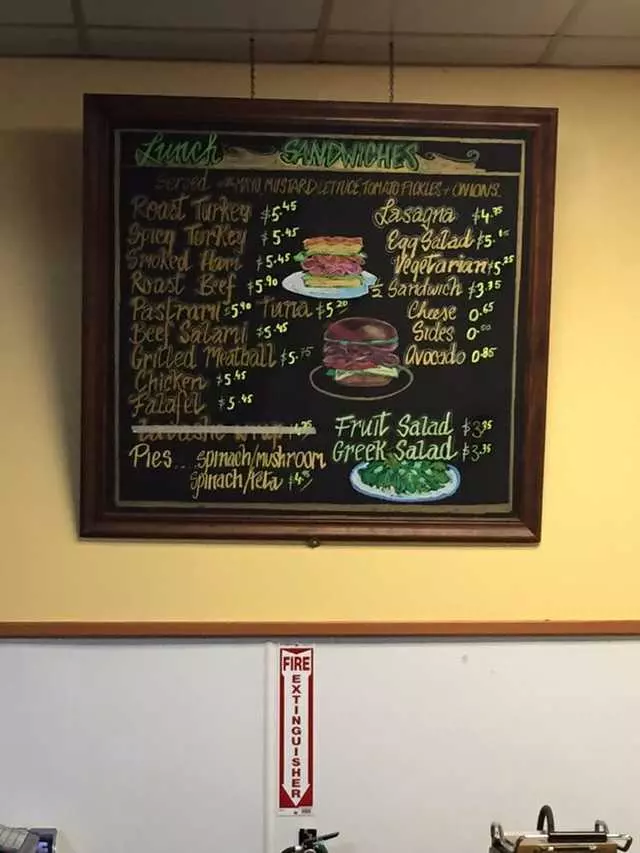 Lunch SANDWICHES
Served with MAYO MUSTARD LETTUCE TOMATO PICKLES + ONIONS.
Roast Turkey $5.45
Spicy Turkey $5.45
Smoked Ham $5.45
Roast Beef $5.90
Pastrami $5.90 Tuna $5.20
Beef Salami $5.45
Grilled Meatball $5.75
Chicken $5.45
Falafel $5.45
Pies.... spinach/mushroom
spinach/feta
Lasagna
Egg Salad
Vegetarian $5.25
½ Sandwich $3.35
Cheese 0.65
Sides
Avocado 0.85
Fruit Salad $3.95
Greek Salad $3.35
FIRE
EXTINGUISHER